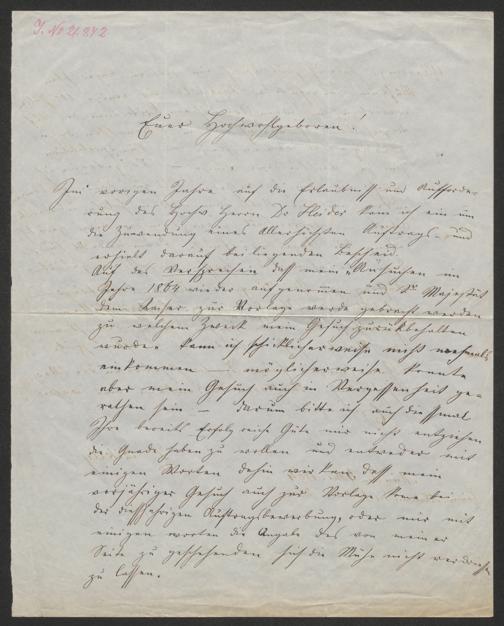 J. No 21.842
Euer Hochwohlgeboren!
Im vorigen Jahre auf die Erlaubniss und Aufforde-
rung des Hochw. Herrn Dr Heider kam ich ein um
die Zuwendung eines Allerhöchsten Auftrags und
erhielt darauf beiliegenden Bescheid.
Auf das Versprechen dass mein "Ansuchen im
Jahre 1864 wieder aufgenommen und Sr Majestät
dem Kaiser zur Vorlage werde gebracht werden
zu welchem Zweck mein Gesuch zurückbehalten
wurde" kann ich schicklicherweise nicht nochmals
einkommen – möglicherweise könnte
aber mein Gesuch auch in Vergessenheit ge-
rathen sein – darum bitte ich auch diessmal
Ihre bereits Erfolg reiche Güte mir nicht entziehen
die Gnade haben zu wollen und entweder mit
einigen Worten dahin wirken dass mein
vorjähriges Gesuch auch zur Vorlage kome bei
der diessjährigen Auftragsbewerbung, oder mir mit
einigen worten die Angabe des von meiner
Seite zu geschehenden sich die Mühe nicht verdriessen
zu lassen.